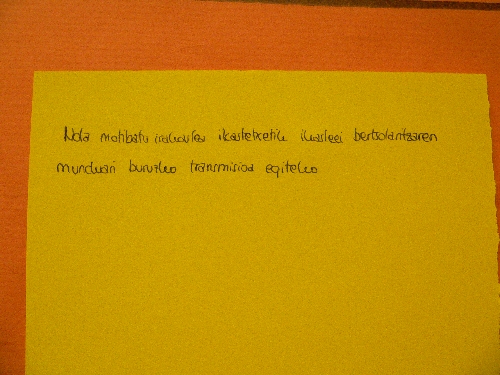 Nola motibatu irakaslea ikastetxetik ikasleei bertsolaritzaren
munduari buruzko transmisioa egiteko